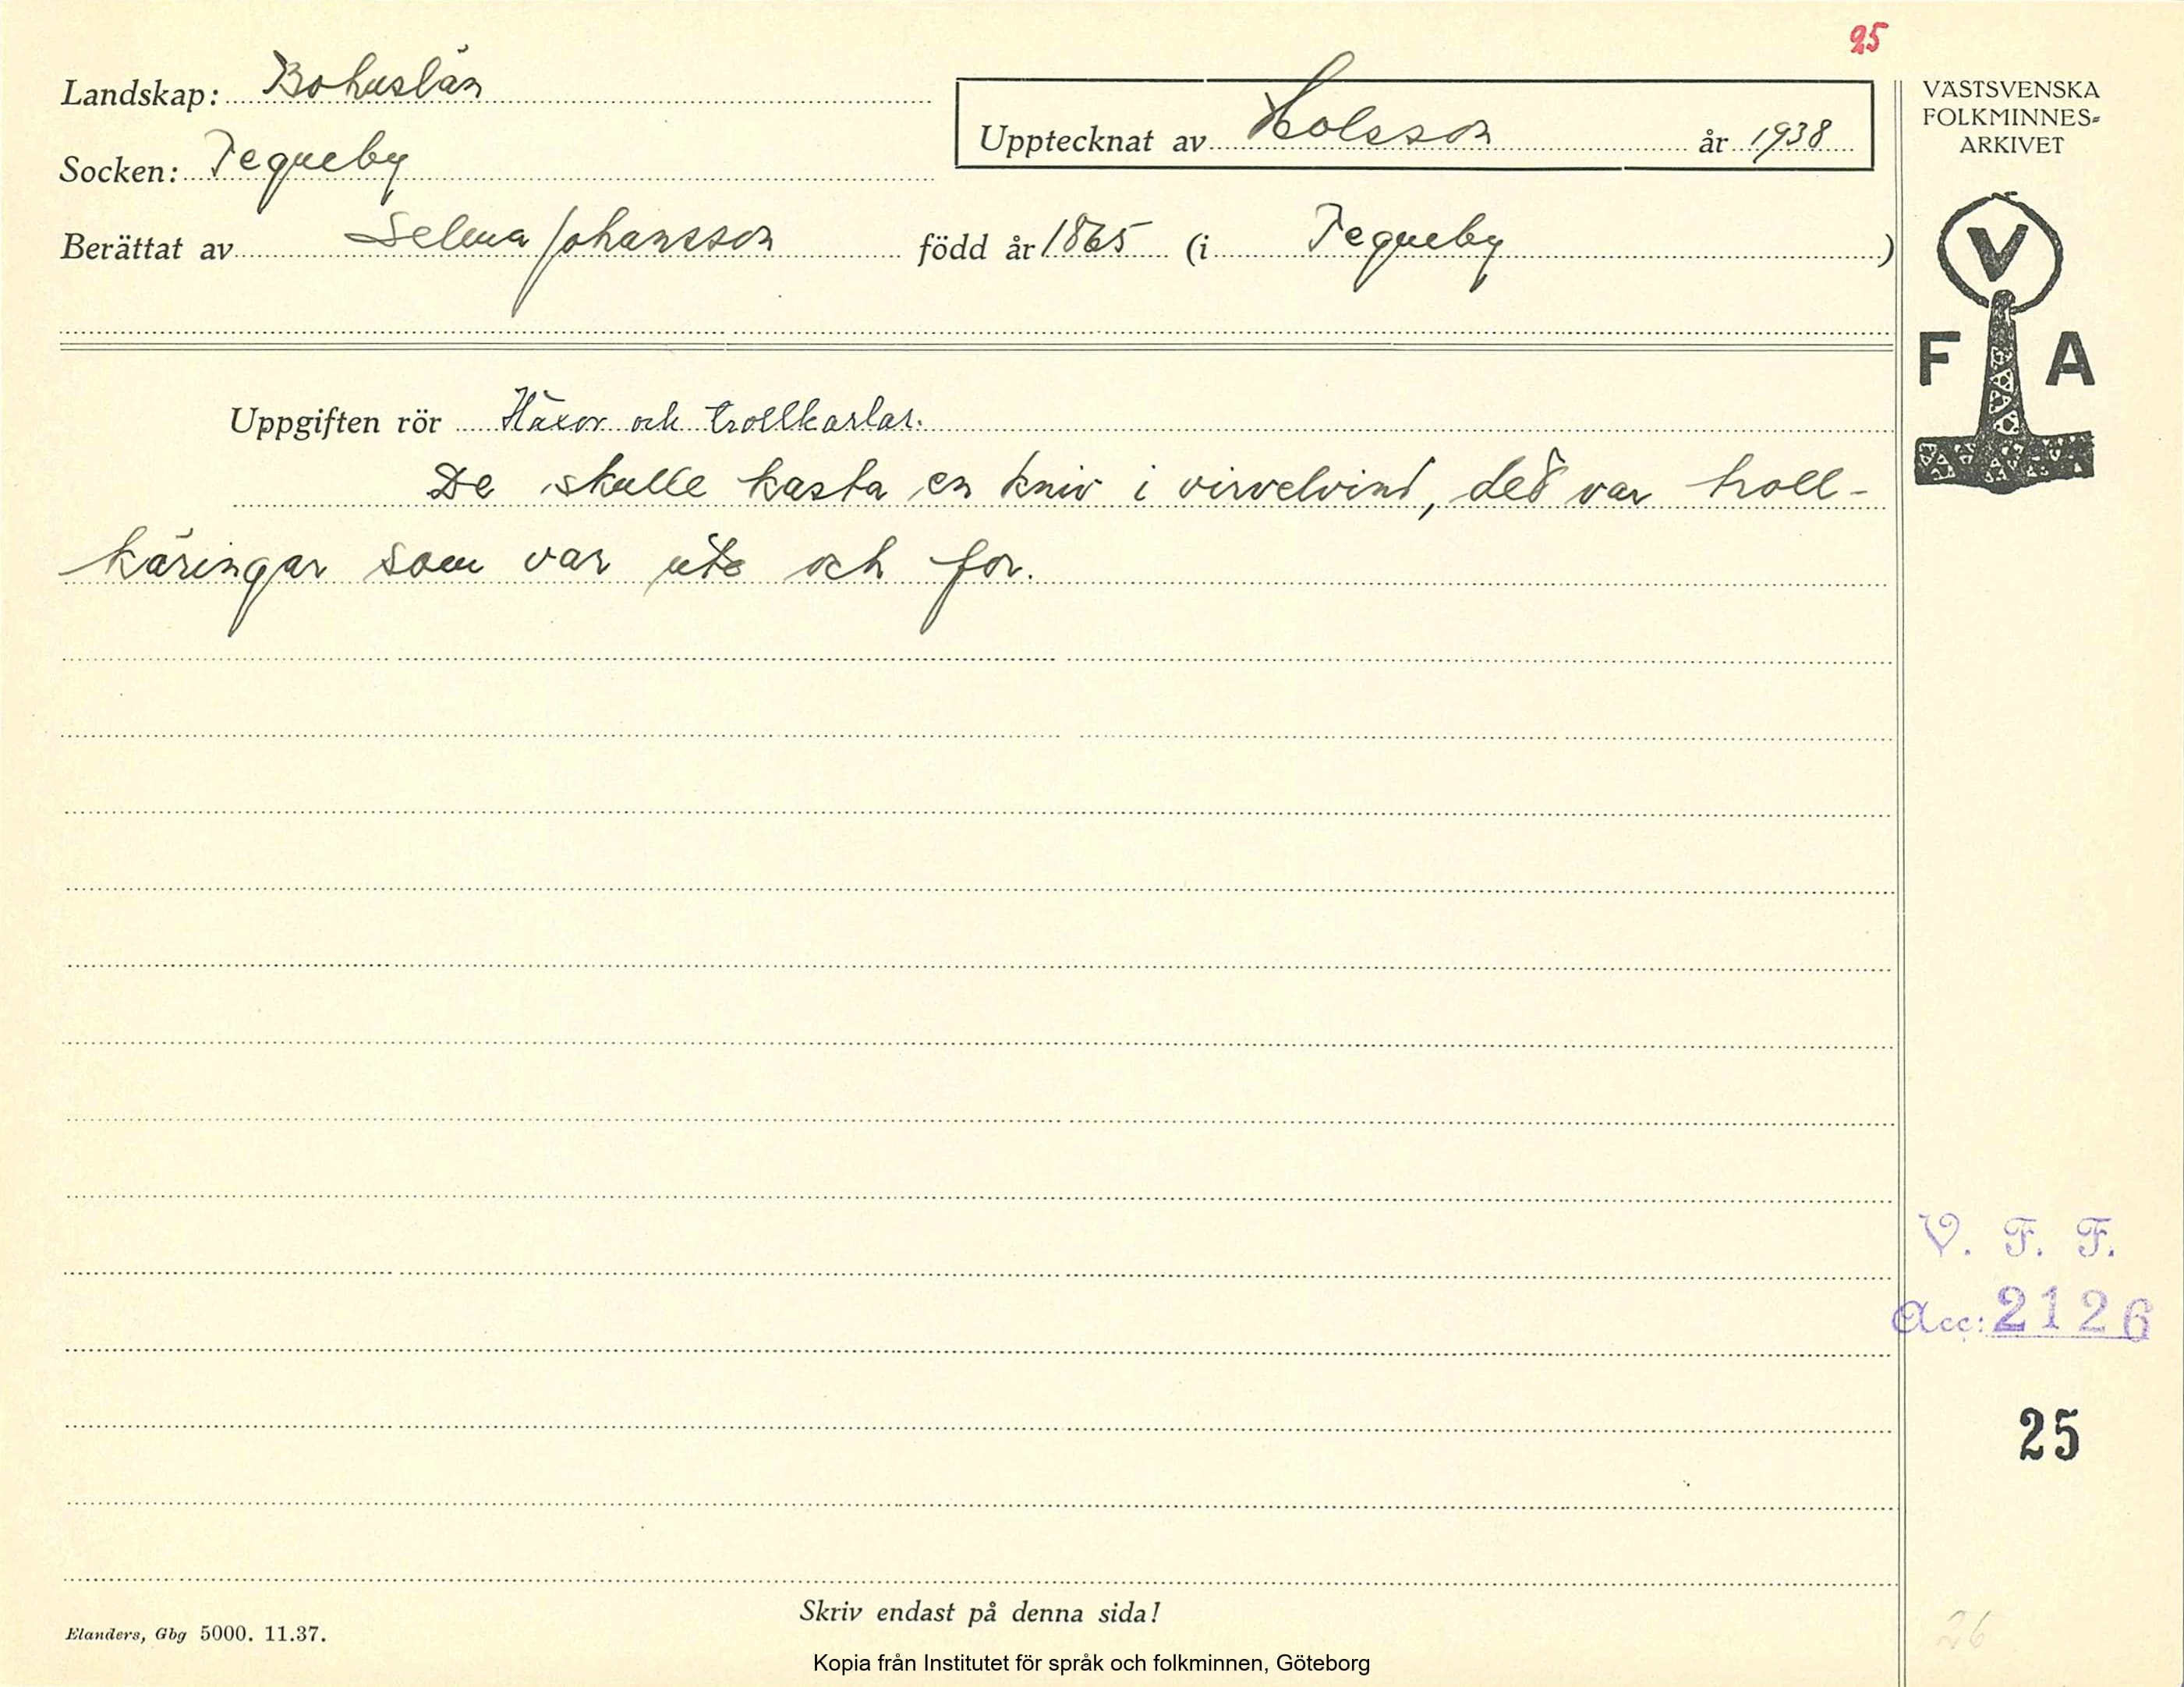 25
Landskap: Bohuslän
Socken: Tegneby
Upptecknat av Holsson år 1938
Berättat av Selma Johansson född år 1865 (i Tegneby )
Uppgiften rör Häxor och trollkarlar.
De skulle kasta en kniv i virvelvind, det var troll-
käringar som var ute och for.
Skriv endast på denna sida!
Elanders, Gbg 5000. 11.37.
Kopia från Institutet för språk och folkminnen, Göteborg
VÄSTSVENSKA
FOLKMINNES-
ARKIVET
V
F A
V. F. F.
Acc: 2126
25
26